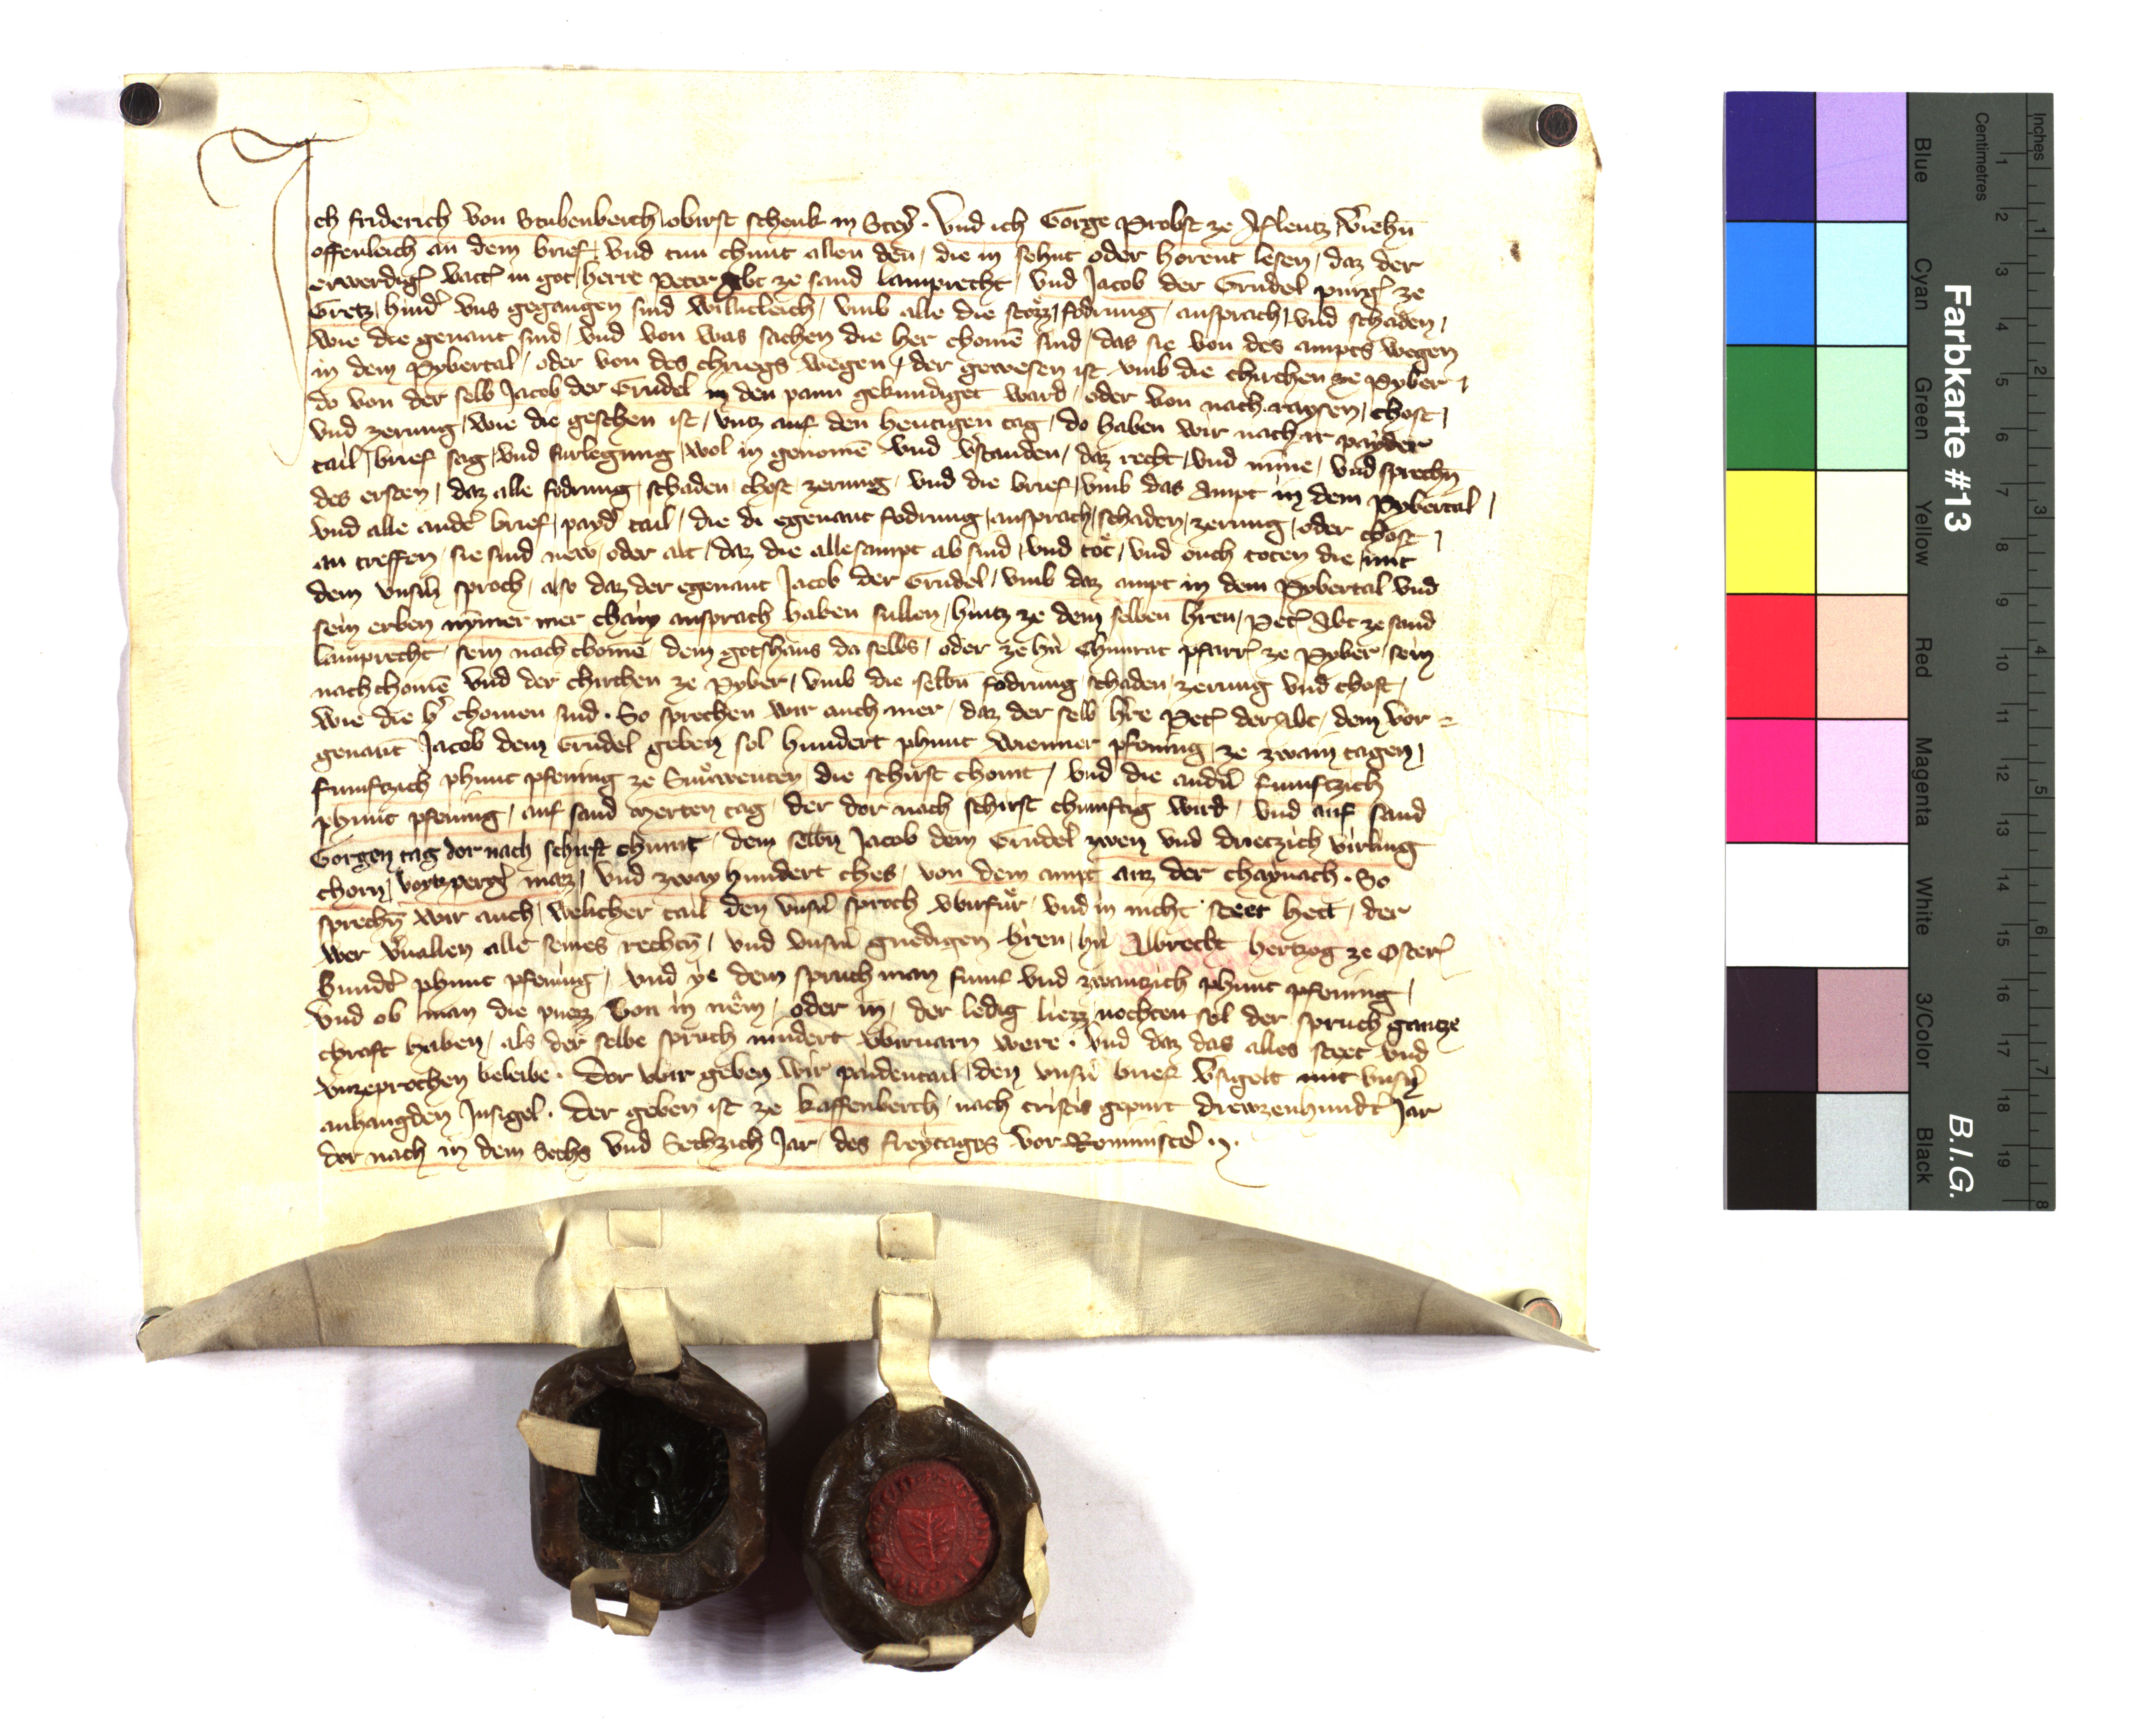 Ich friderich von Stubenberch obirst schenk in Steyr · Und ich Gorge Probst ze Aflentz v̉iehn̄
offenleich an dem brief / und tun chunt allen den / die in sehnt oder horent lesen / daz der
erwerdig vatt̉ in got / herre Peter Abt ze sand Lamprecht / und Jacob der Grudel purg̉ ze
Gretz / hind̉ uns gegangen sind willicleich / umb alle die stozz / fodrung / ansprach / und schaden /
wie die genant sind / und von was sachen die her chomē sind / das sie von des ampts wegen
in dem Pybertal / oder von des chriegs wegen / der gewesen ist umb die chirchen ze Pyber /
do von der selb Jacob der Grudel in den pann gekundiget ward / oder von nach raysen / chost /
und zerung / wie die geschen ist / untz auf den heutigen tag / do haben wir nach ir payder
tail / brief sag / und furlegung / wol in genomē und v̉standen / daz recht / und minne / und sprechn̄
des ersten / daz alle fodrung / schaden chost zerung / und die brief / umb das Ampt in dem Pybertal /
und alle ander̉ brief / payd̉ tail / die di egenant fodrung / ansprach / schaden / zerung / oder chost /
an treffen / sie sind new / oder alt / daz die allesampt ab sind / und tot / und ouch toten die mit
dem unsn̉ sproch / also daz der egenant Jacob der Grudel / umb daz ampt in dem Pybertal und
sein erben nymer mer chain ansprach haben sullen / hintz ze dem selben hren / Pet̉ Abt ze sand
Lamprecht / sein nachchomē dem gotshaus da selbs / oder ze hn̉ Chunrat pfarr̉ ze Pyber / sein
nachchomē und der chirchen ze Pyber / umb die selbn̄ fodrung schaden / zerung und chost /
wie die h̉ chomen sind · So sprechen wir auch mer / daz der selb hre Pet̉ der Abt / dem vor =
genant Jacob dem Grudel geben sol hundert phunt Wienner pfening / ze zwain tagen /
fumftzich phunt pfening ze Sunwenten die schirst choment / und die andn̉ fumftzich
phunt pfening / auf sand Merten tag / der dor nach schirst chumftig wird / und auf sand
Gorgen tag dor nach schirst chumt / dem selbn̄ Jacob dem Grudel zwen und dreizzich virling
chorn / voytzperg̉ mazz / und zway hundert ches / von dem ampt auz der chaynach · So
sprechn̄ wir auch / welicher tail den unsn̉ sproch ubirfur / und in nicht steet hett / der
wer v̉uallen alle seines rechtn̄ / und unsm̉ gnedigen hren / hn̉ Albrecht hertzog ze Oster̉
hundt̉ phunt pfening / und ye dem spruchman fumf und zwantzich phunt pfening /
und ob man die puezz von in nem / oder in / der ledig liezz / nochten sol der spruch gantze
chraft haben / als der selbe spruch nindert ubiruarn were · Und daz das alles steet und
unzeprochen beleibe · Dor ubir geben wir paidentail / den unsn̉ brief v̉sigelt mit unsn̉
anhangden Insigel · Der geben ist ze Kaffenberch / nach cristes gepurt Drewzenhundt̉ Jar
dor nach in dem Sechs und Sechzich Jar / des freytages vor Reminiscer̉ ·
Farbkarte #13
B.I.G.
Inches
Centimetres
1 2 3 4 5 6 7 8 9 10 11 12 13 14 15 16 17 18 19
1 2 3 4 5 6 7 8
Blue
Cyan
Green
Yellow
Red
Magenta
White
3/Color
Black